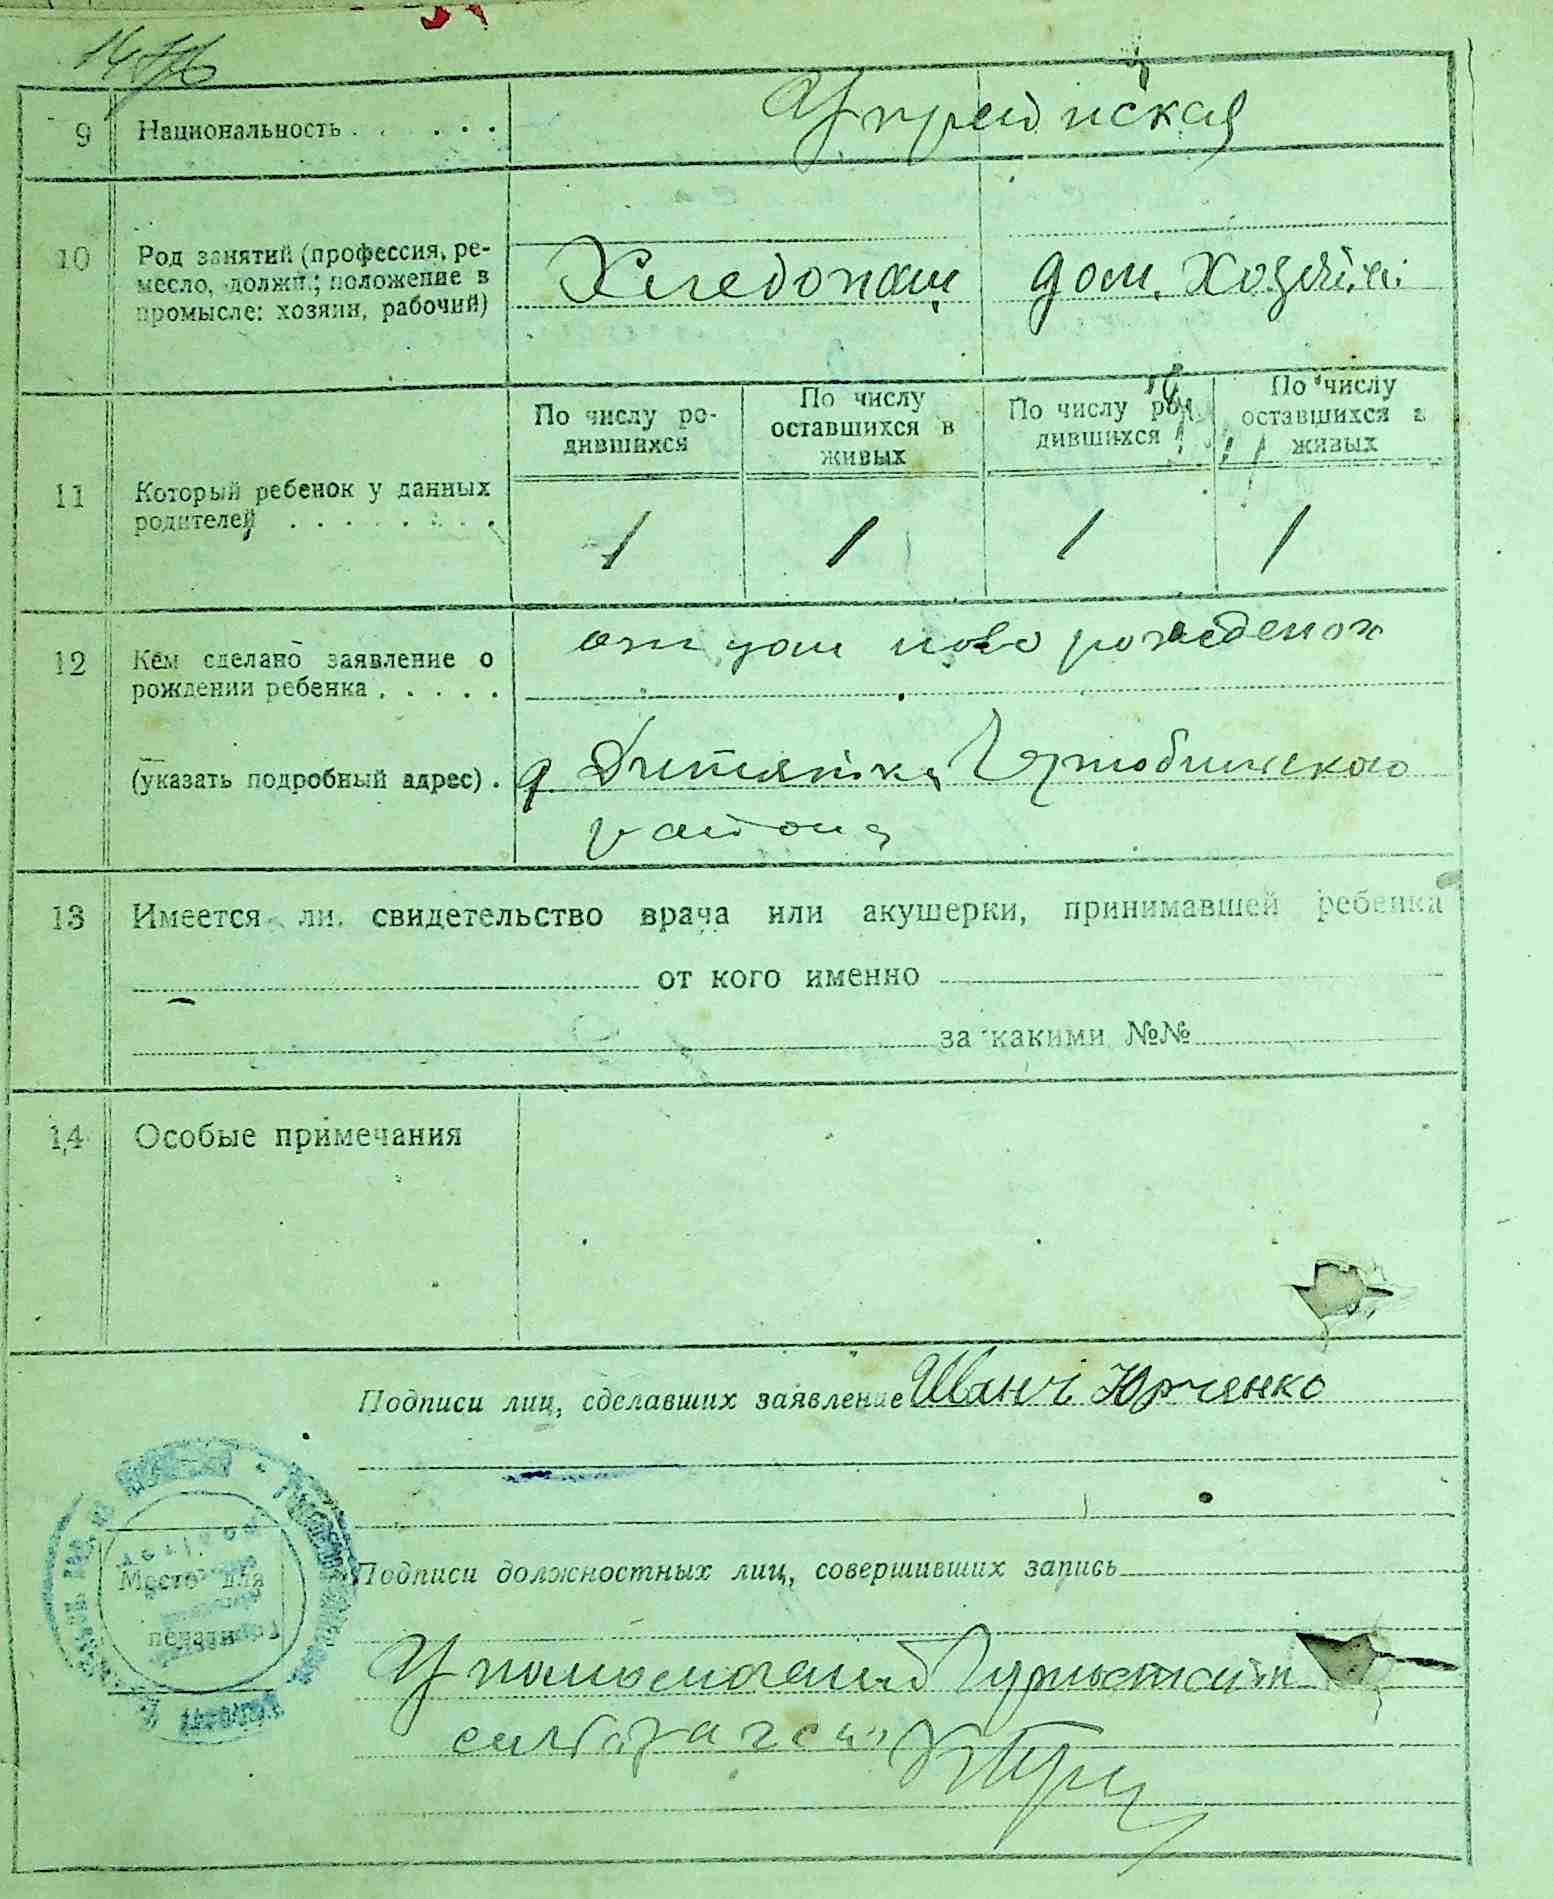 9 Национальность . . . . . .
10 Род занятий (профессия, ре-
месло, должн.; положение в
промысле: хозяин, рабочий)
Хлебопаш дом. Хозяйк
По числу ро-
дившихся
По числу
оставшихся в
живых
По числу ро-
дившихся
По числу
оставшихся в
живых
11 Который ребенок у данных
родителей . . . . . . . .
1 1 1 1
12 Кем сделано заявление о
рождении ребенка . . . . .
отцом ново рожденок
(указать подробный адрес) .
д Дитятка Чернобильского
района
13 Имеется ли свидетельство врача или акушерки, принимавшей ребенка
от кого именно
за какими №№
14 Особые примечания
Подписи лиц, сделавших заявление Юрченко
Подписи должностных лиц, совершивших запись
Место для
печати